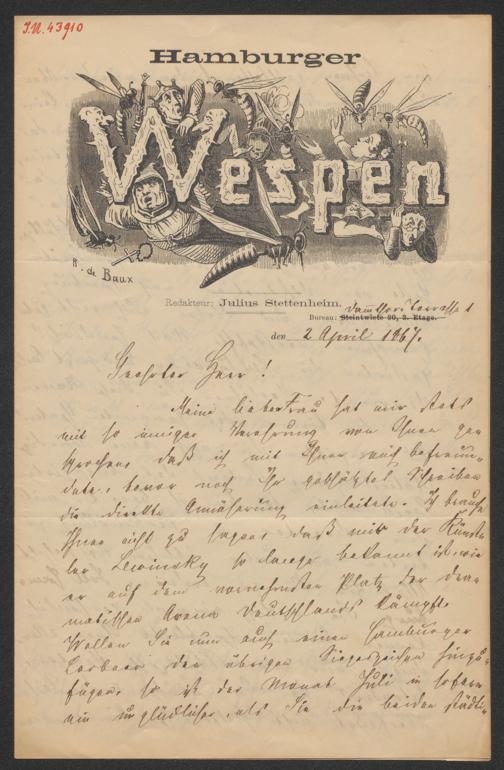 J.N. 43910
Hamburger
Wespen
R. de Baux
Redakteur: Julius Stettenheim.
Dammthorterrasse 1
Bureau: Steintwiete 20, 2. Etage.
den 2 April 1867.
Geehrter Herr!
Meine liebe Frau hat mir stets
mit so inniger Verehrung von Ihnen ge-
sprochen, daß ich mit Ihnen mich befreun-
dete, bevor noch Ihr geschätztes Schreiben
die direkte Annäherung einleitete. Ich brauche
Ihnen nicht zu sagen, daß mir der Künst-
ler Lewinsky so lange bekannt ist, wie
er auf dem vornehmsten Platz der dra-
matischen Arena Deutschlands kämpft.
Wollen Sie nun auch einen Hamburger
Lorbeer den übrigen Siegeszeichen hinzu-
fügen, so ist der Monat Juli in sofern
ein unglücklicher, als Sie die beiden städti-